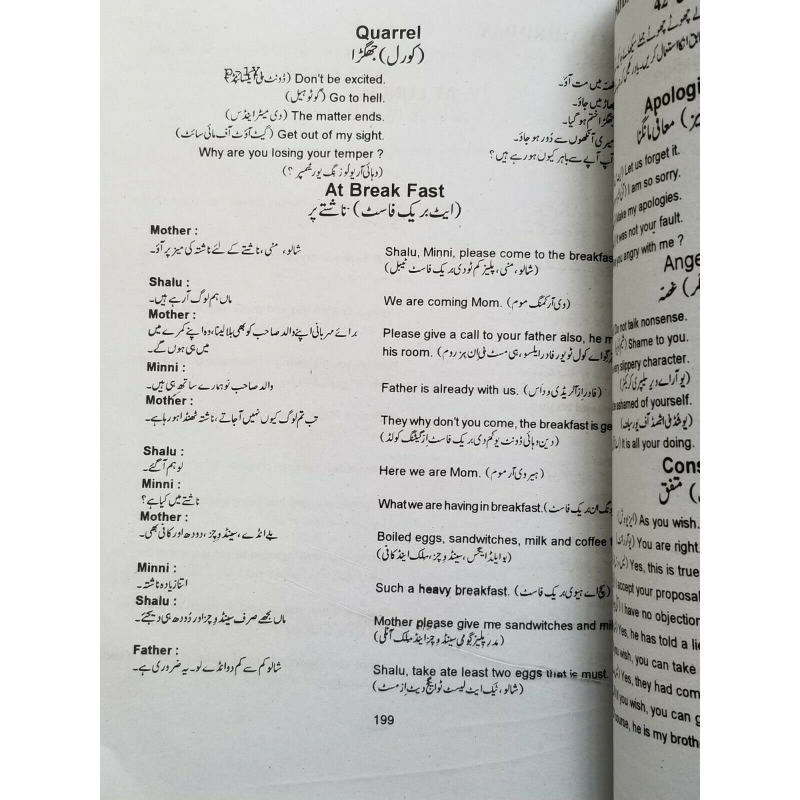 Quarrel
(کورل) جھگڑا
Don't be excited.
غصہ میں مت آؤ۔
(گوٹو ہیل) Go to hell.
بھاڑ میں جاؤ۔
(دی میٹر اینڈس) The matter ends.
جھگڑا ختم ہو گیا۔
(گیٹ آؤٹ آف مائی سائٹ) Get out of my sight.
میری آنکھوں سے دُور ہو جاؤ۔
Why are you losing your temper ?
آپ آپے سے باہر کیوں ہو رہے ہیں؟
(وہائی آر یو لوزنگ یور ٹمپر؟)
At Break Fast
(ایٹ بریک فاسٹ) ناشتے پر
Mother :
شالو، منی، ناشتے کے لئے ناشتہ کی میز پر آؤ۔
Shalu, Minni, please come to the breakfas
(شالو، منی، پلیز کم ٹو دی بریک فاسٹ ٹیبل)
Shalu :
ماں ہم لوگ آ رہے ہیں۔
We are coming Mom. (وی آر کمنگ موم)
Mother :
برائے مہربانی اپنے والد صاحب کو بھی بلا لینا، وہ اپنے کمرے میں
میں ہی ہوں گے۔
Please give a call to your father also, he m
his room.
Minni :
والد صاحب تو ہمارے ساتھ ہی ہیں۔
Father is already with us. (فادر از آلریڈی ود اَس)
Mother :
تب تم لوگ کیوں نہیں آ جاتے، ناشتہ ٹھنڈا ہو رہا ہے۔
They why don't you come, the breakfast is ge
(دین وہائی ڈونٹ یو کم دی بریک فاسٹ از گیٹنگ کولڈ)
Shalu :
لو ہم آ گئے۔
Here we are Mom. (ہیر وی آر موم)
Minni :
ناشتے میں کیا ہے؟
What we are having in breakfast.
Mother :
ابلے انڈے، سینڈوچز، دودھ اور کافی بھی۔
Boiled eggs, sandwitches, milk and coffee t
(بوائلڈ ایگس، سینڈوچز، ملک اینڈ کافی)
Minni :
اتنا زیادہ ناشتہ۔
Such a heavy breakfast. (سچ اے ہیوی بریک فاسٹ)
Shalu :
ماں مجھے صرف سینڈوچز اور دُودھ ہی دیجئے۔
Mother please give me sandwitches and mil
(مدر پلیز گو می سینڈوچز اینڈ ملک آنلی)
Father :
شالو کم سے کم دو انڈے لو۔ یہ ضروری ہے۔
Shalu, take ate least two eggs that is must.
(شالو، ٹیک ایٹ لیسٹ ٹو ایگز دیٹ از مسٹ)
199
Apologi
معافی مانگنا
Let us forget it.
I am so sorry.
make my apologies.
was not your fault.
you angry with me ?
Ange
غصّہ
Do not talk nonsense.
Shame to you.
very slippery character.
(یو آر اے ویر سلیپری کریکٹر)
ashamed of yourself.
It is all your doing.
Cons
متفق
As you wish.
You are right.
Yes, this is true
accept your proposal
I have no objection
Yes, he has told a lie
you wish, you can take
Yes, they had com
If you wish, you can g
course, he is my broth